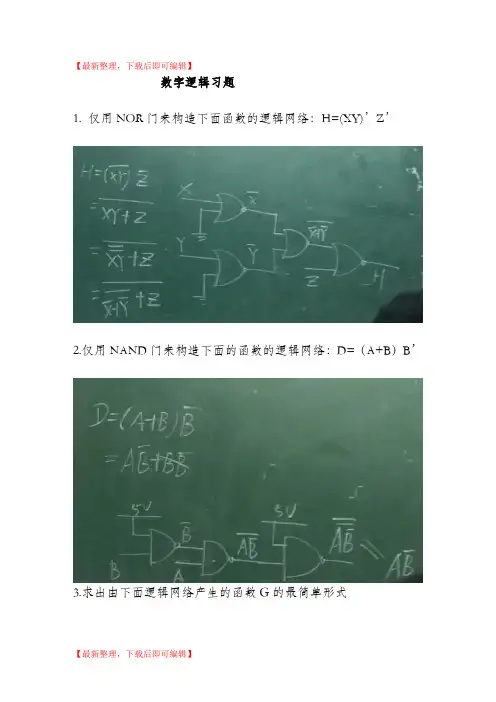 【最新整理，下载后即可编辑】
数字逻辑习题
1. 仅用NOR门来构造下面函数的逻辑网络：H=(XY)’Z’
H=(X̅Y̅)Z̅
= \overline{XY+Z}
= \overline{\overline{\overline{XY}}+Z}
= \overline{\overline{X̅+Y̅}+Z}
X
X̅
Y
Y̅
\overline{X̅+Y̅}
Z
H
2.仅用NAND门来构造下面的函数的逻辑网络：D=（A+B）B’
D=(A+B)B̅
=AB̅+BB̅
5V
B̅
B
A
\overline{AB̅}
5V
\overline{\overline{AB̅}}
AB̅
3.求出由下面逻辑网络产生的函数G的最简单形式
【最新整理，下载后即可编辑】